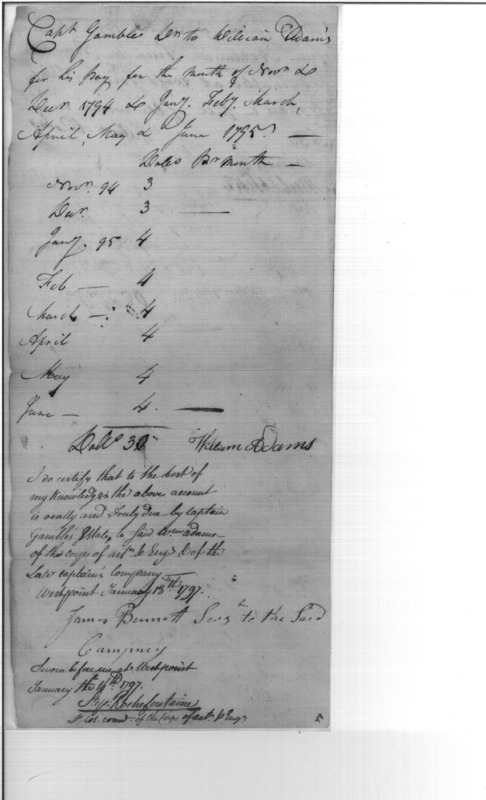 Capt Gamble Dr to William Adams
for his pay for the month of Novr &
Decr 1794 & Jany. Feby. March,
April, May & June 1795. —
Dolls Pr month —
Novr. 94 3
Decr. 3 —
Jany. 95 4
Feb — 4
March — 4
April 4
May 4
June — 4 —
Dolls 30 William Adams
I do certify that to the best of
my Knowledge the above account
is really and Truly due by Captain
Gamble to said Wm adams
of the corps of & Engrs of the
Late captains Company
Westpoint January 13th 1797.
James Bennett Sergt to the Said
Compney
Sworn before me at Westpoint
January the 14th 1797.
Stepn. Rochefontaine
Lt Col. comdt of the Corps of & Engrs